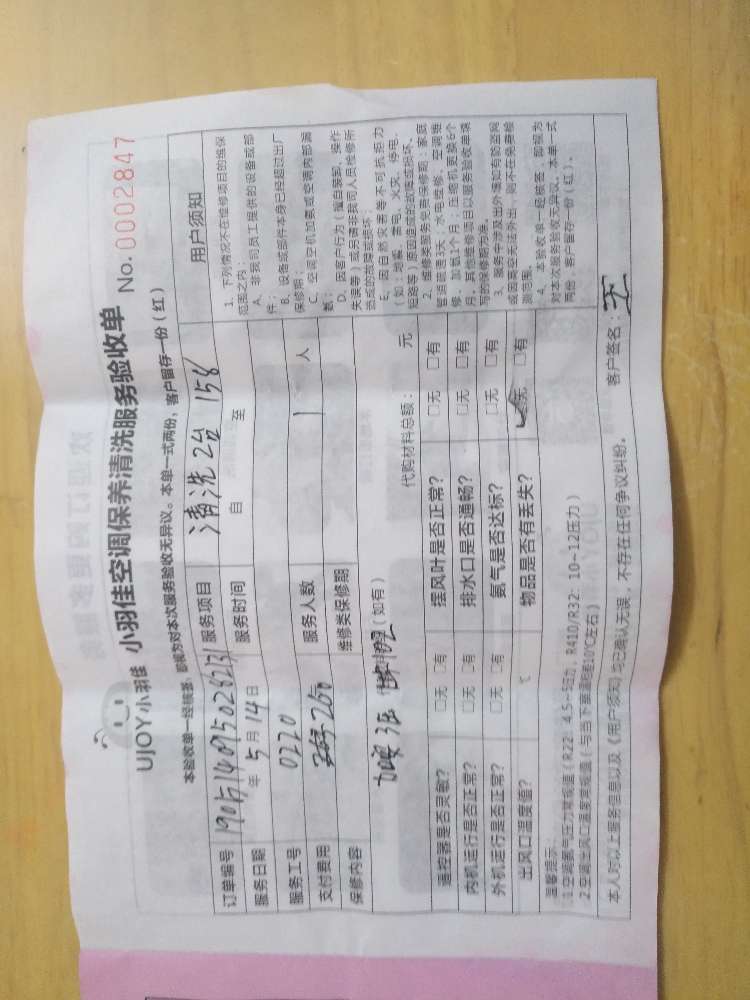 UJOY小羽佳 小羽佳空调保养清洗服务验收单 No. 0002847
本验收单一经核签,即视为对本次服务验收无异议。本单一式两份,客户留存一份(红)
订单编号 服务项目 清洗2台 158
服务日期 年5月14日 服务时间 自 至
服务工号 0220 服务人数 1 人
支付费用 260 维修类保修期
保修内容
(如有) 代购材料总额: 元
遥控器是否灵敏? □无 □有 摆风叶是否正常? □无 □有
内机运行是否正常? □无 □有 排水口是否通畅? □无 □有
外机运行是否正常? □无 □有 氨气是否达标? □无 □有
出风口温度值? ℃ 物品是否有丢失? □无 □有
温馨提示:
1.空调氨气压力常规值(R22:4.5~5压力,R410/R32:10~12压力)
2.空调出风口温度常规值(与当下室温相差10℃左右)
本人对以上服务信息以及《用户须知》均已确认无误,不存在任何争议纠纷。 客户签名:
用户须知
1、下列情况不在维修项目的维保
范围之内:
A、非我司员工提供的设备或部
件;
B、设备或部件本身已经超过出厂
保修期;
C、空调空机加氨或空调内部漏
氨;
D、因客户行为(擅自装卸、操作
失误等)或另请非我司人员检修所
造成的故障或损坏;
E、因自然灾害等不可抗拒力
(如:地震、雷电、火灾、停电、
短路等)原因造成的故障或损坏。
2、维修类服务免费保修期:家庭
管道疏通3天;水电维修、空调维
修、加氨1个月;压缩机更换6个
月,其他维修项目以服务验收单填
写的保修期为准。
3、服务中涉及出外墙如有防盗网
或因高空无法外出,则不在免费检
测范围。
4、本验收单一经核签,即视为
对本次服务验收无异议。本单一式
两份,客户留存一份(红)。